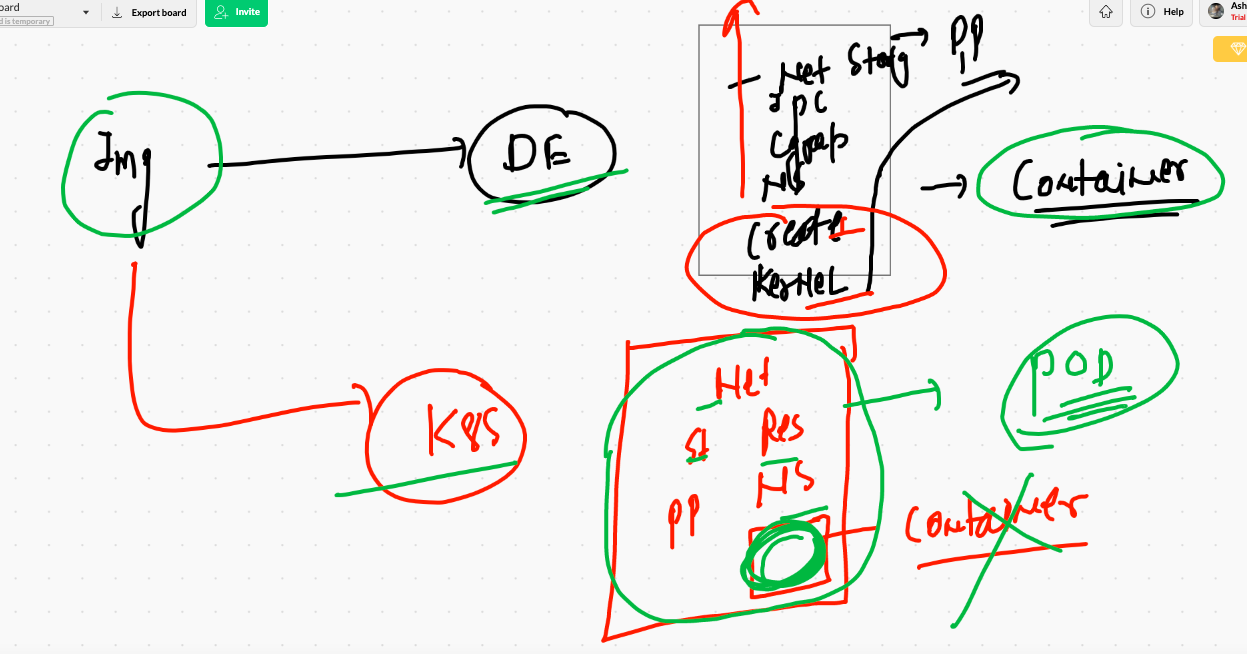 oard
d is temporary
Export board
Invite
Help
Ash
Trial
Img
DE
Net Storg
PP
IPC
Cgroup
NS
Create
Kernel
Container
K8S
Net
St
Res
NS
PP
POD
Container